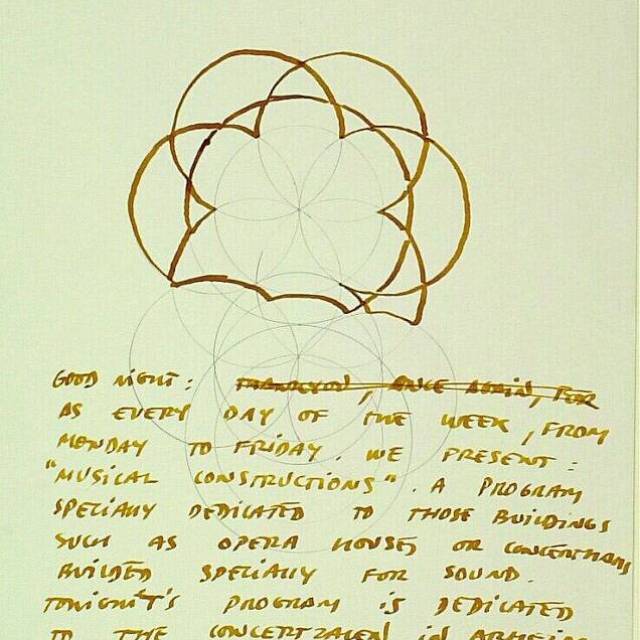 GOOD NIGHT: THANKYOU, ONCE AGAIN, FOR
AS EVERY DAY OF THE WEEK, FROM
MONDAY TO FRIDAY. WE PRESENT:
"MUSICAL CONSTRUCTIONS". A PROGRAM
SPECIALLY DEDICATED TO THOSE BUILDINGS
SUCH AS OPERA HOUSES OR CONCERTHALLS
BUILDED SPECIALLY FOR SOUND.
TONIGHT'S PROGRAM IS DEDICATED
TO THE CONCERTZALEN IN